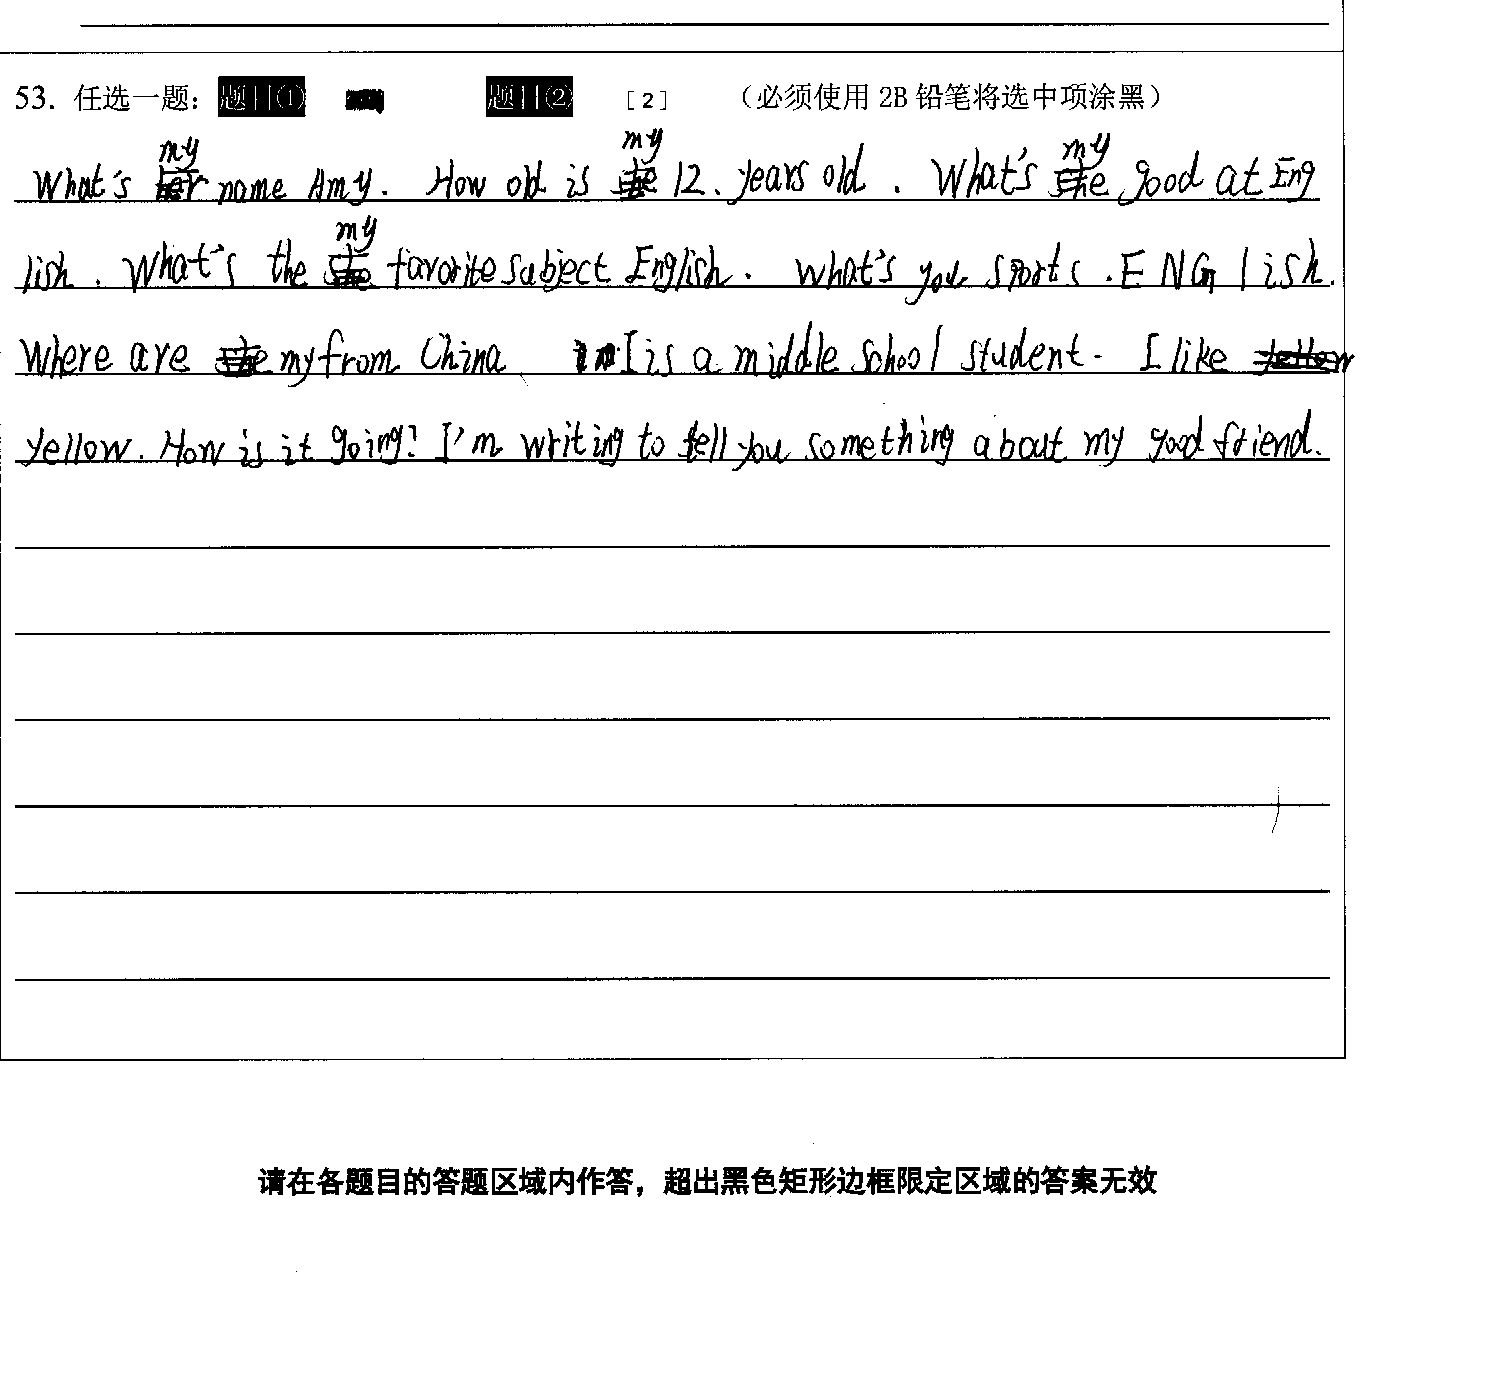 53. 任选一题： 题目① 题目② [2] （必须使用 2B 铅笔将选中项涂黑）
What's my name Amy. How old is my 12. years old. What's my good at Eng
lish. What's the my favorite subject English. What's you sports. ENGlish.
Where are my from China I is a middle school student. I like
yellow. How is it going? I'm writing to tell you something about my good friend.
请在各题目的答题区域内作答，超出黑色矩形边框限定区域的答案无效